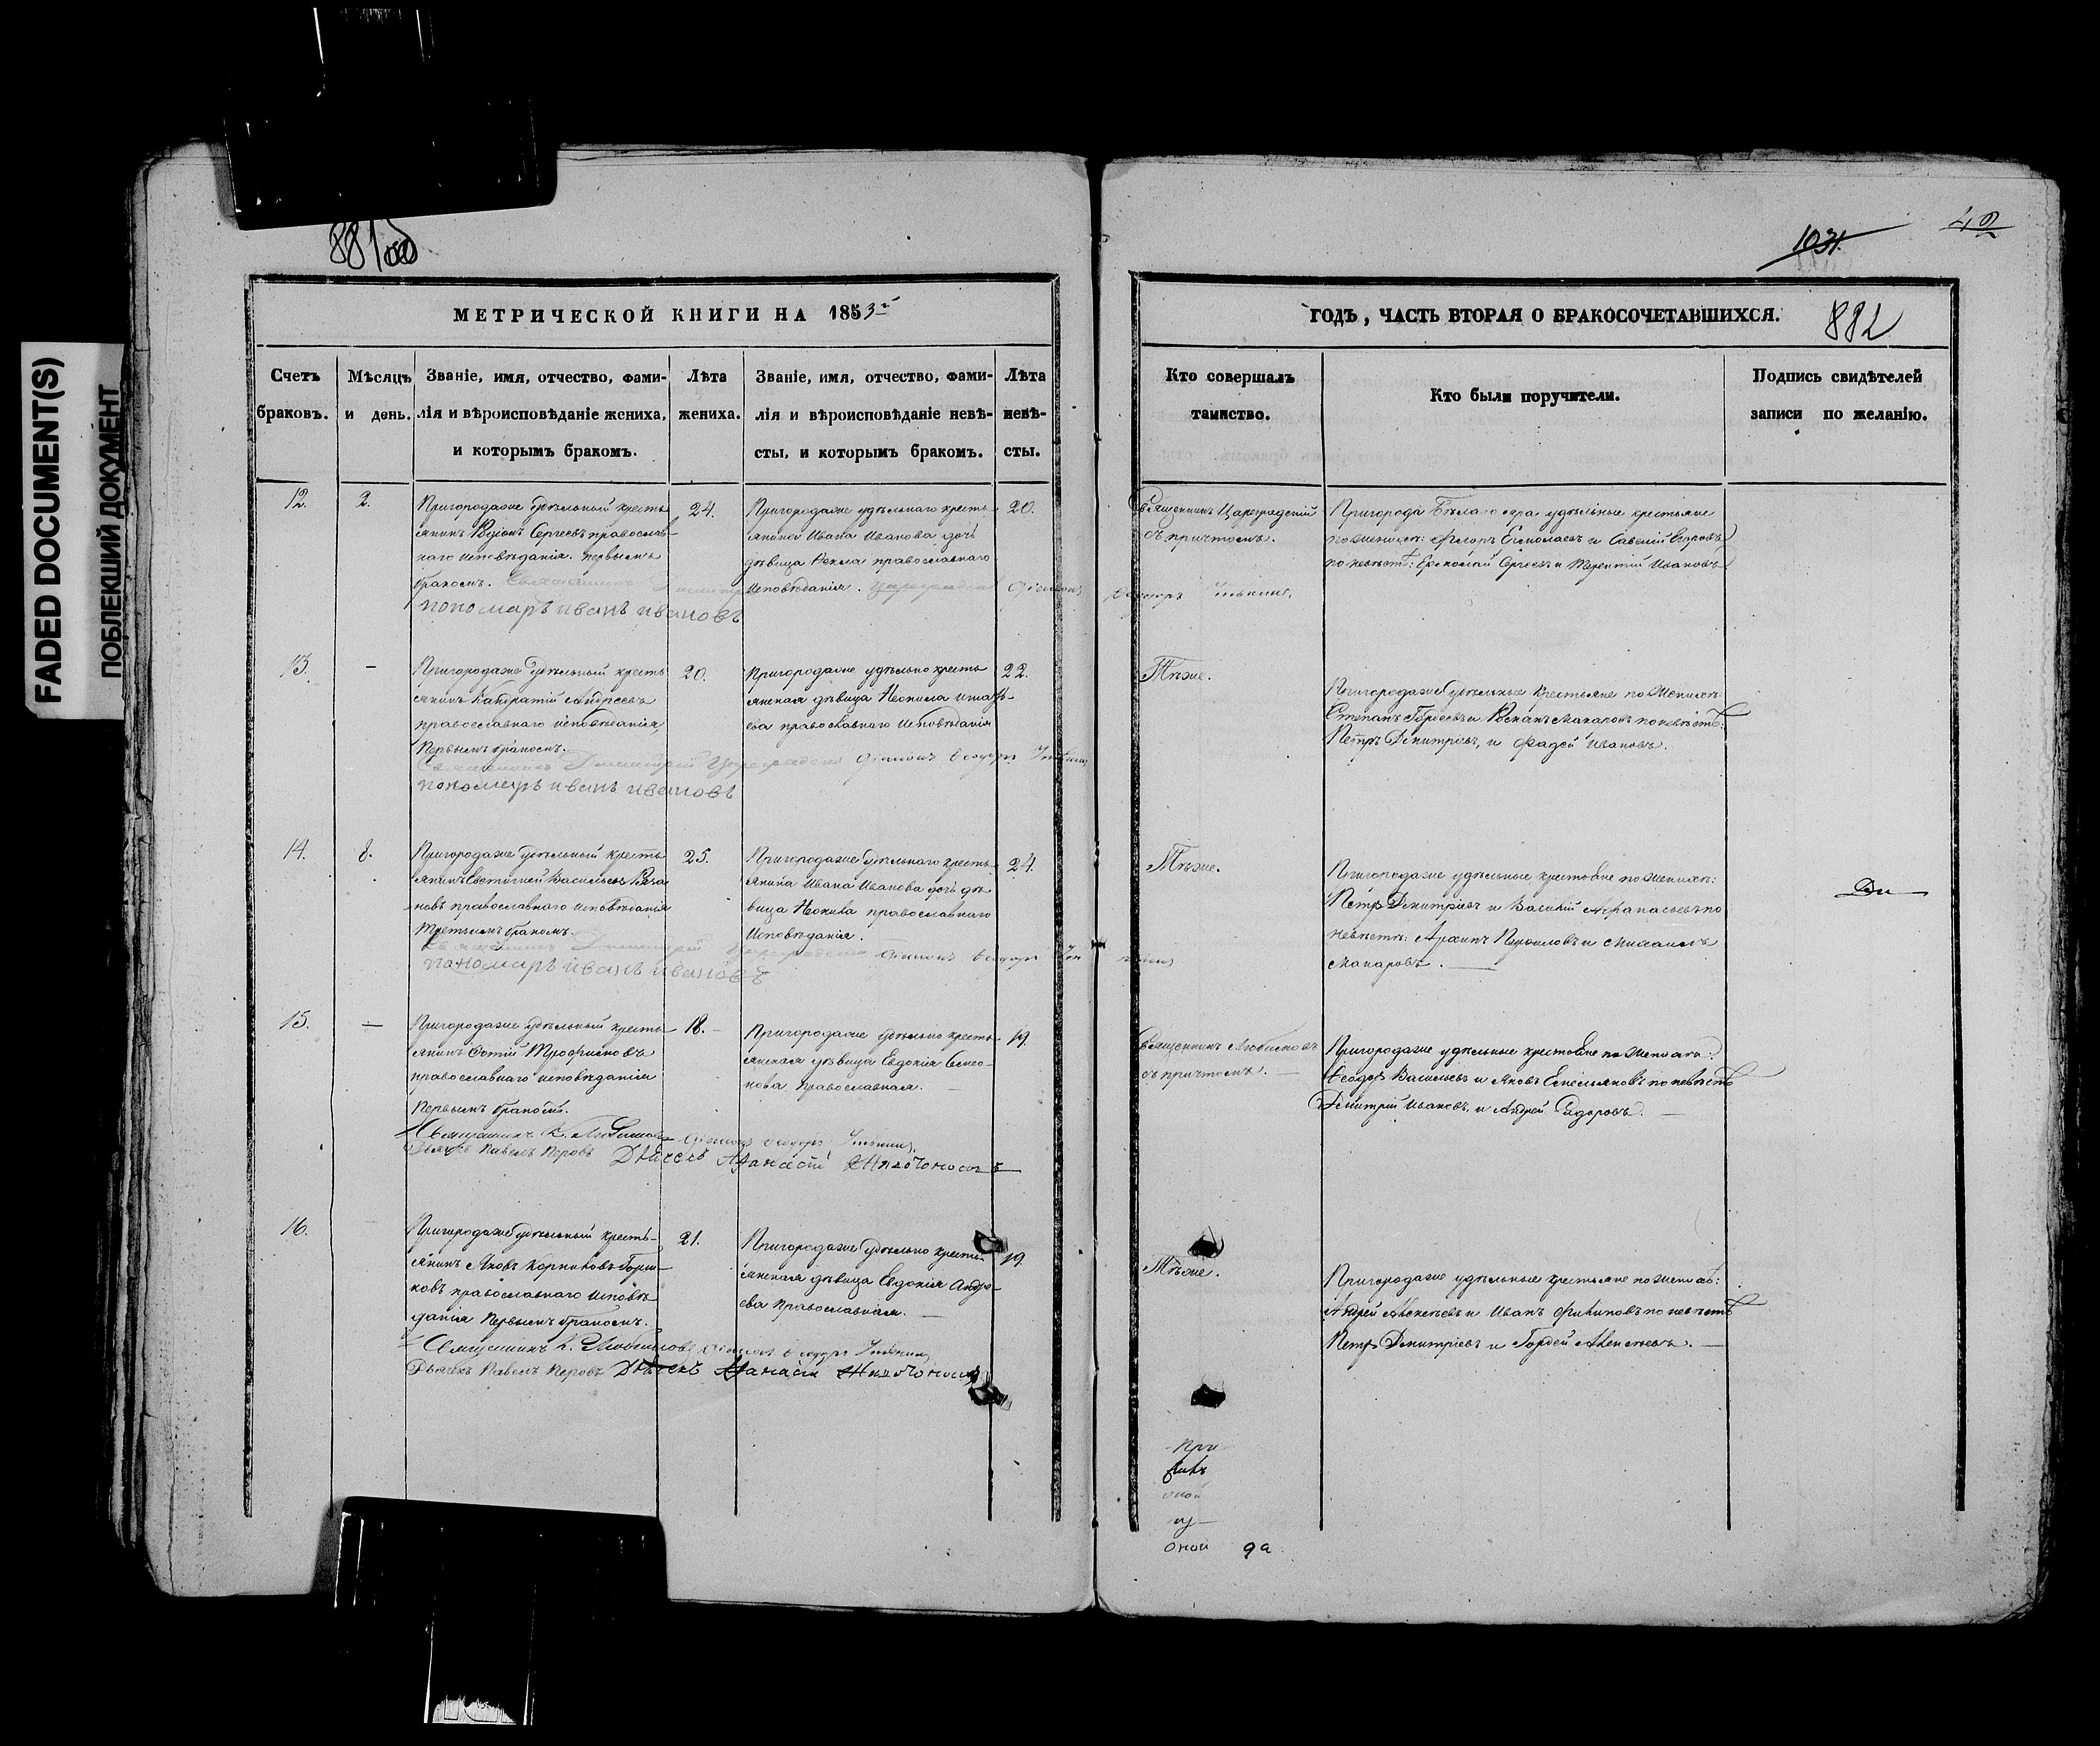 FADED DOCUMENT(S)
ПОБЛЕКШИЙ ДОКУМЕНТ
881об
МЕТРИЧЕСКОЙ КНИГИ НА 1853й
Счетъ браковъ.
Мѣсяцъ и день.
Званіе, имя, отчество, фами-
лія и вѣроисповѣданіе жениха,
и которымъ бракомъ.
Лѣта жениха.
Званіе, имя, отчество, фами-
лія и вѣроисповѣданіе невѣ-
сты, и которымъ бракомъ.
Лѣта невѣ-
сты.
12.
2.
Пригородаже удѣльный кресть
янинъ Родіонъ Сергеевъ православ-
наго исповѣданія. первымъ
бракомъ. Священникъ Димитрій
пономарь иванъ ивановъ
24.
Пригородаже удѣльнаго кресть-
янина Ивана Иванова дочь
дѣвица Фекла православнаго
исповѣданія. Цареградскій Діаконъ
20.
13.
—
Пригородаже удѣльный кресть
янинъ Кандратій Андреевъ
православнаго исповѣданія
Первымъ бракомъ.
Священникъ Димитрій Цареградскій Діаконъ Ѳеодоръ
пономарь иванъ ивановъ
20.
Пригородаже удѣльно кресть
янская дѣвица Неонила
ева православнаго Исповѣданія
22.
14.
8.
Пригородаже удѣльный кресть
янинъ Евстигней Васильевъ
новъ православнаго исповѣданія
третьимъ бракомъ.
Священникъ Димитрій Цареградскій Діаконъ Ѳеодоръ
пономарь иванъ ивановъ
25.
Пригородаже удѣльнаго кресть-
янина Ивана Иванова дочь дѣ
вица православнаго
Исповѣданія.
24.
15.
—
Пригородаже удѣльный кресть
янинъ Фотій Трофимовъ
православнаго исповѣданія
Первымъ бракомъ.
Священникъ К. Любимовъ Діаконъ Ѳеодоръ
Дьячекъ Павелъ Перовъ Дьячекъ Афанасій Живоносновъ
18.
Пригородаже удѣльно кресть-
янская дѣвица Евдокія Семе-
нова Православная.
19.
16.
Пригородаже удѣльный кресть-
янинъ Яковъ Корниловъ Горш-
ковъ православнаго исповѣ
данія Первымъ бракомъ.
Священникъ К. Любимовъ Діаконъ Ѳеодоръ
Дьячекъ Павелъ Перовъ Дьячекъ Афанасій
21.
Пригородаже удѣльно кресть
янская дѣвица Евдокія Андре-
ева Православная.
19
1031.
42
ГОДЪ, ЧАСТЬ ВТОРАЯ О БРАКОСОЧЕТАВШИХСЯ.
882
Кто совершалъ
таинство.
Кто были поручители.
Подпись свидѣтелей
записи по желанію.
Священникъ Цареградскій
съ причтомъ.
Ѳеодоръ
Пригорода Бѣлаго яра удѣльные крестьяне
по женихѣ: Флоръ Ермолаевъ и Савелій Егоровъ
по невѣстѣ: Ермолай Сергеевъ и Терентій Ивановъ
Тѣже.
Пригородаже удѣльные крестьяне по женихѣ:
Степанъ Гордеевъ и Романъ Макаровъ по невѣстѣ:
Петръ Димитріевъ, и Фадей Ивановъ.
Тѣже.
Пригородаже удѣльные крестьяне по женихѣ:
Петръ Димитріевъ и Василій Афанасьевъ по
невѣстѣ: Архипъ и Михаилъ
Макаровъ.
Священникъ Любимовъ
съ причтомъ.
Пригородаже удѣльные крестьяне по женихѣ:
Ѳеодоръ Васильевъ и Яковъ Емельяновъ по невѣстѣ
Димитрій Ивановъ, и Андрей Сидоровъ.
Тѣже.
Пригородаже удѣльные крестьяне по женихѣ:
Андрей Алексѣевъ и Иванъ Филиповъ по невѣстѣ
Петръ Димитріевъ и Гордей Алексѣевъ.
При
оной